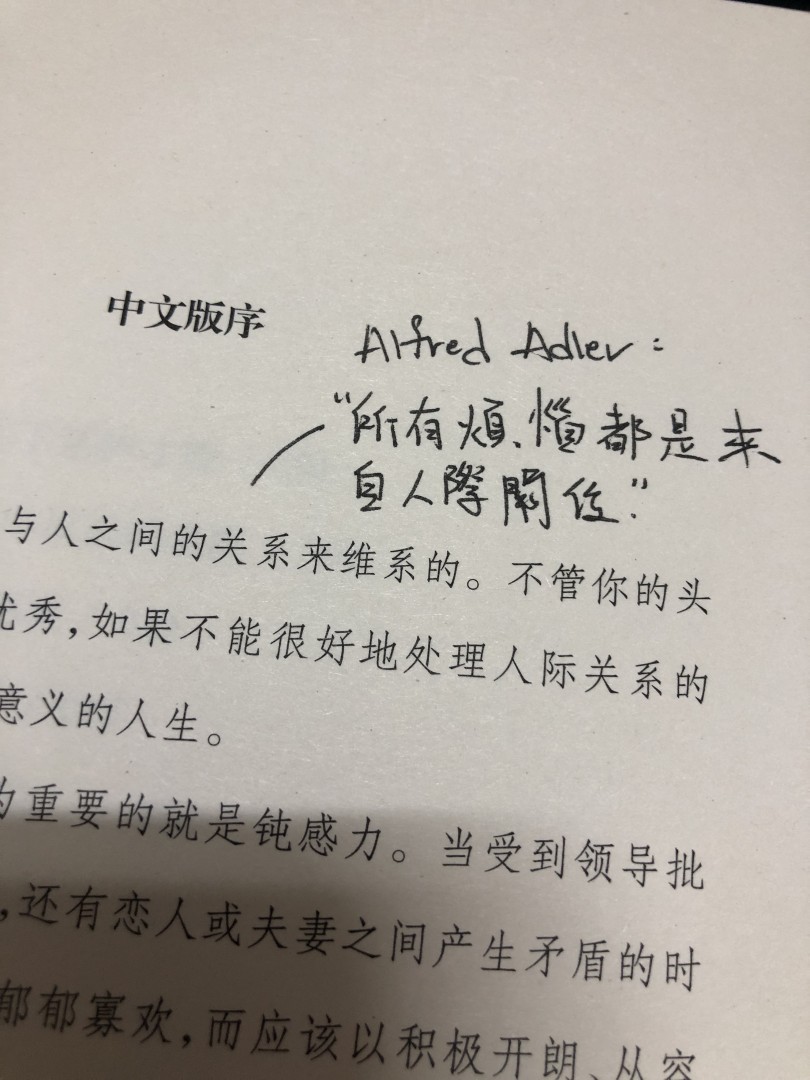 中文版序
Alfred Adler:
“所有煩惱都是来
自人際關係.”
与人之间的关系来维系的。不管你的头
优秀,如果不能很好地处理人际关系的
意义的人生。
为重要的就是钝感力。当受到领导批
,还有恋人或夫妻之间产生矛盾的时
郁郁寡欢,而应该以积极开朗、从容